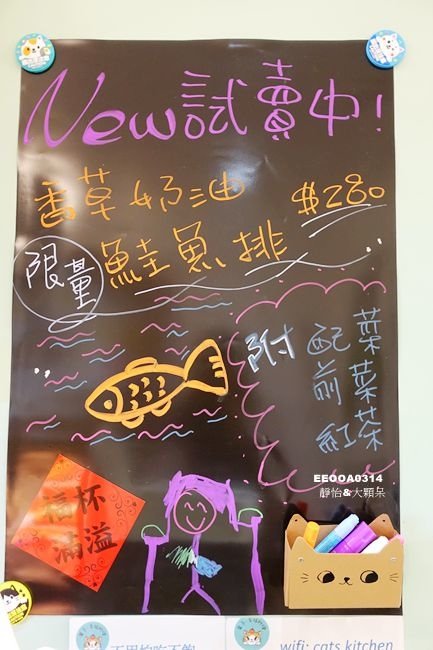 New 試賣中!
香草奶油 $280
限量 鮭魚排
附 配菜
前菜
紅茶
EEOOA0314
靜怡&大顆呆
福杯
滿溢
wifi: cats kitchen